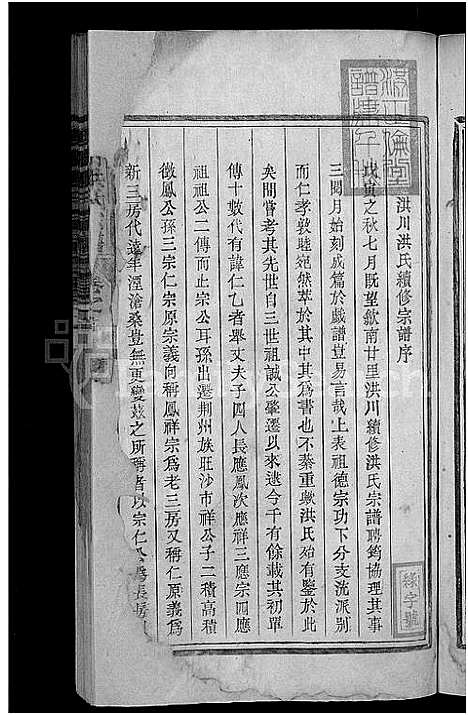 洪川洪氏續修宗譜序
戊寅之秋七月既望歙南廿里洪川續修洪氏宗譜聘筠協理其事
三閱月始刻成篇於戲譜豈易言哉上表祖德宗功下分支流派別
而仁孝敦睦宛然萃於其中其為書也不綦重歟洪氏殆有鑒於此
矣間嘗考其先世自三世祖誠公肇遷以來逮今千有餘載其初單
傳十數代有諱仁乙者舉丈夫子四人長應鳳次應祥三應宗四應
祖祖公二傳而止宗公耳孫出遷荆州族旺沙市祥公子二積高積
徵鳳公孫三宗仁宗原宗義向稱鳳祥宗為老三房又稱仁原義為
新三房代遠年湮滄桑豈無更變茲之所稱者以宗仁公為長房
絲字號
洪川
倫堂
譜